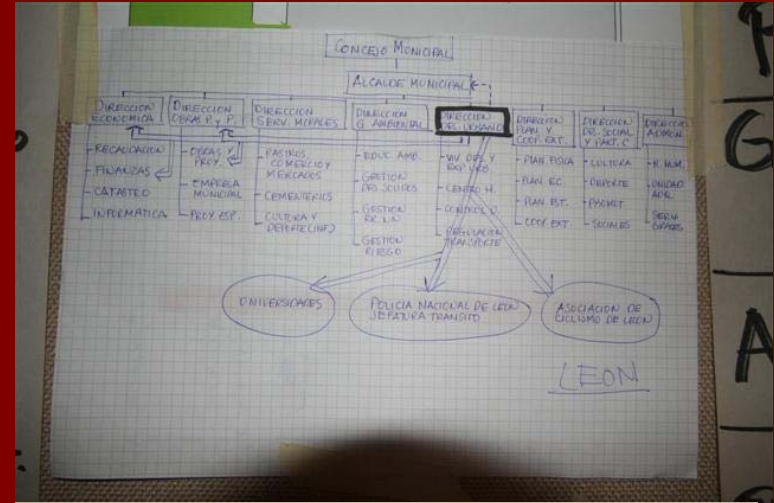 CONCEJO MUNICIPAL
ALCALDE MUNICIPAL
DIRECCION
ECONOMICA
- RECAUDACION
- FINANZAS
- CATASTRO
- INFORMATICA
DIRECCION
OBRAS P. Y P.
- OBRAS Y
PROY.
- EMPRESA
MUNICIPAL
- PROY. ESP.
DIRECCION
SERV. MCPALES
- RASTROS,
COMERCIO Y
MERCADOS
- CEMENTERIOS
- CULTURA Y
DEPORTE (INF.)
DIRECCION
G. AMBIENTAL
- EDUC. AMB.
- GESTION
DES. SOLIDOS
- GESTION
RR. NN.
- GESTION
RIESGO
DIRECCION
DES. URBANO
- CENTRO H.
- CONTROL U.
- REGULACION
TRANSPORTE
DIRECCION
PLAN. Y
COOP. EXT.
- PLAN. FISICA
- PLAN. EC.
- PLAN. EST.
- COOP. EXT.
DIRECCION
DR. SOCIAL
Y PART. C
- CULTURA
- DEPORTE
- SOCIALES
DIRECCION
ADMON.
- R. HUM.
- UNIDAD
ADQ.
- SERV.
GRALES
UNIVERSIDADES
POLICIA NACIONAL DE LEON
JEFATURA TRANSITO
ASOCIACION DE
CICLISMO DE LEON
LEON
G
A